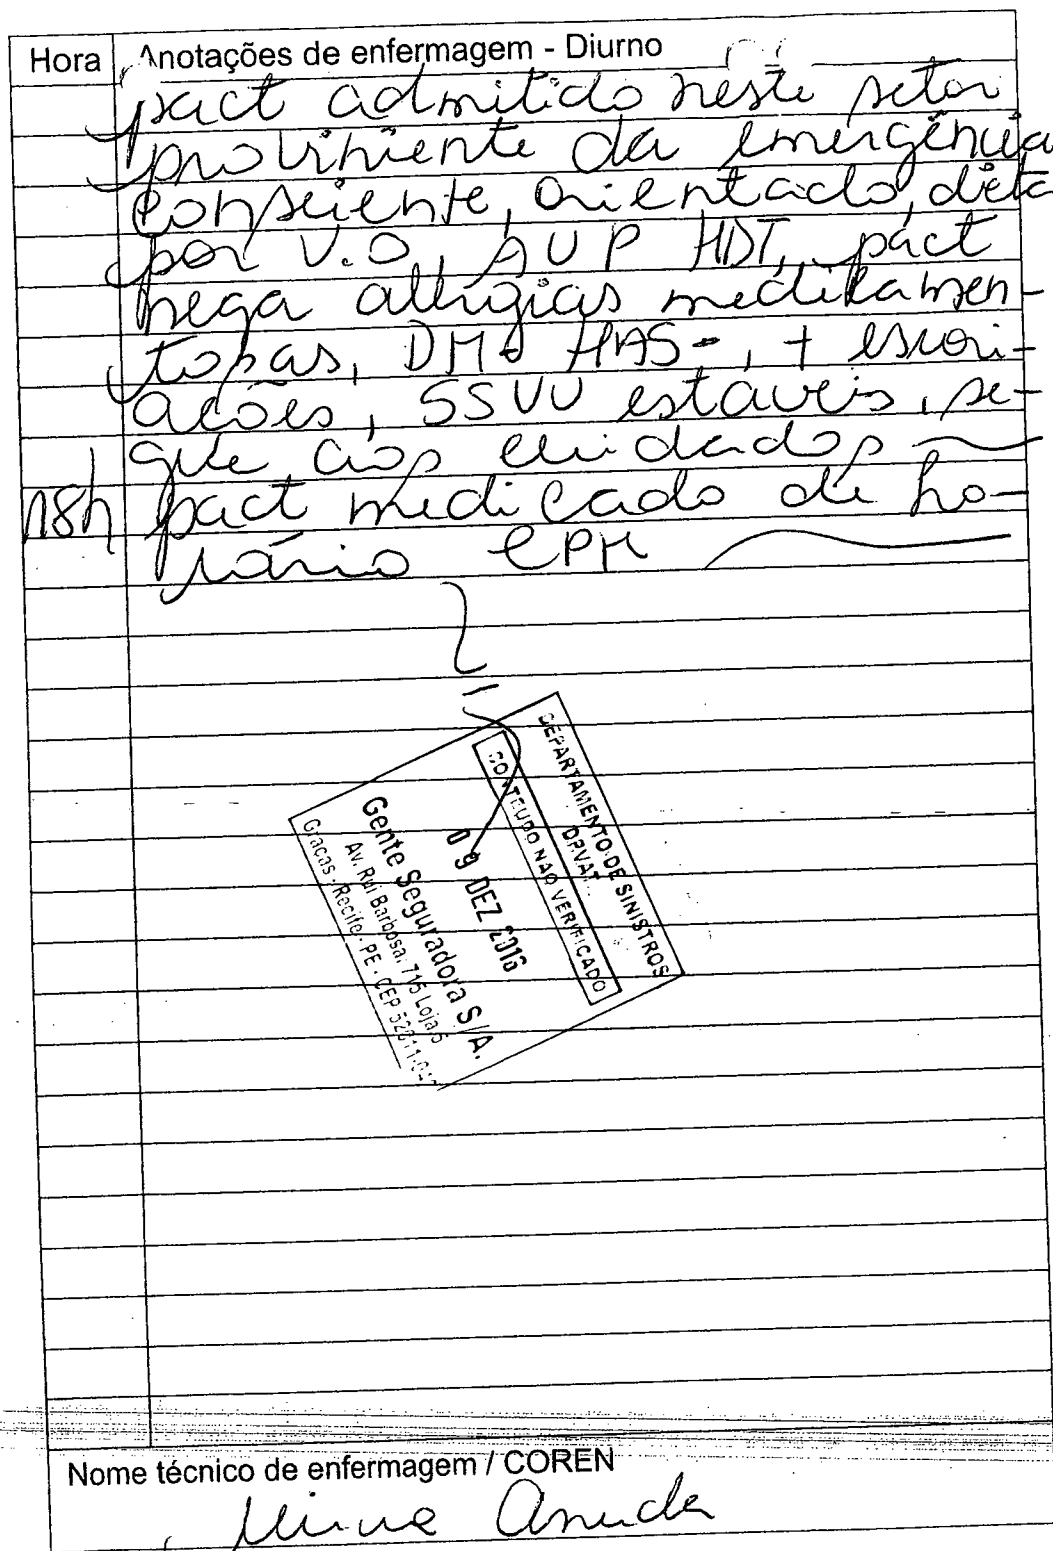 Hora Anotações de enfermagem - Diurno
pact admitido neste setor
proviniente da emergência
consciente, orientado, dieta
por V.O, AVP HDT, pact
nega allergias medicamen-
tosas, DM HAS-, + escori-
ações, SSVV estáveis, se-
gue aos cuidados
18h pact medicado de ho-
rário CPM
DEPARTAMENTO DE SINISTROS
DPVAT
CONTEUDO NAO VERIFICADO
09 DEZ 2016
Gente Seguradora S/A.
Av. Rui Barbosa, 715 Loja 5
Gracas - Recife - PE - CEP
Nome técnico de enfermagem / COREN